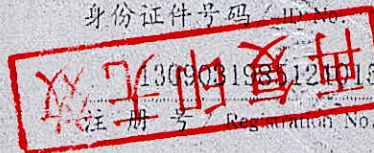 身份证件号码 / ID No.
再复印无效
注册号 / Registration No.